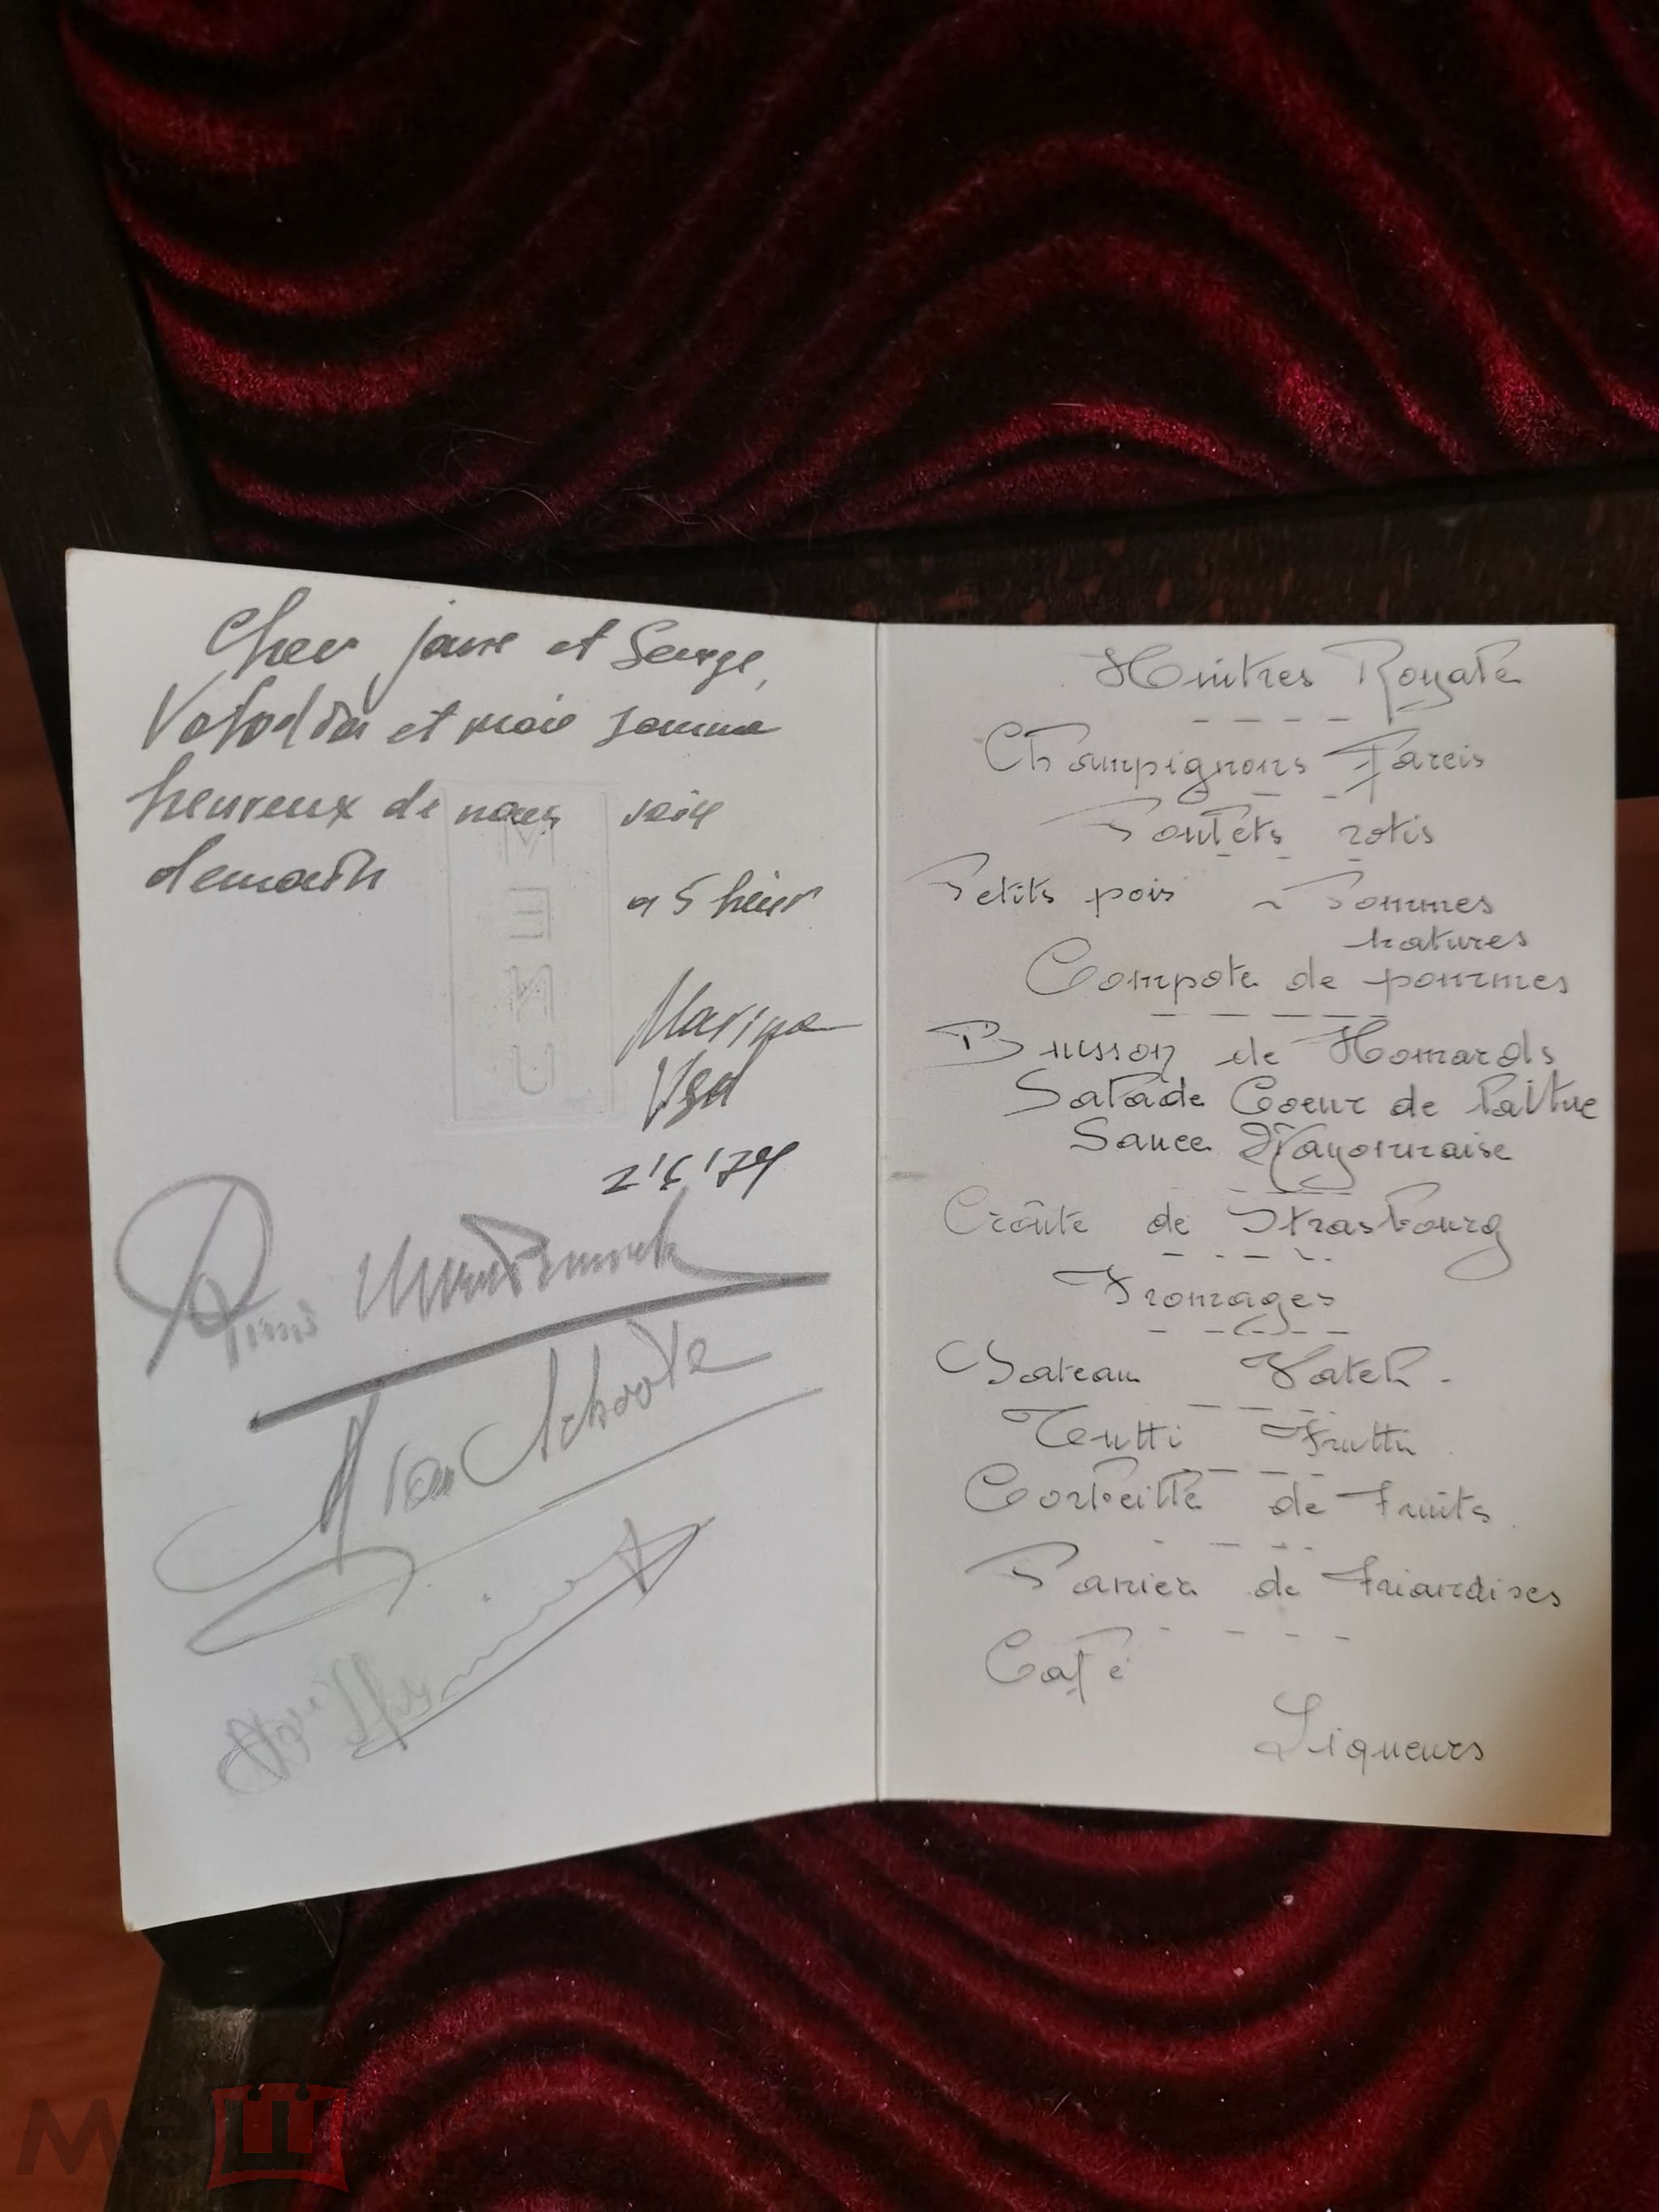 Cher jane et Serge,
Volodia et moi somme
heureux de nous voir
demain
a 5 heur
Marina
Vlad
MENU
Huîtres Royale
Champignons Farcis
Poulets rotis
Petits pois - Pommes
natures
Compote de pommes
Buisson de Homards
Salade Coeur de laitue
Sauce Mayonnaise
Croûte de Strasbourg
Fromages
Gateau Vatel.
Tutti Frutti
Corbeille de Fruits
Panier de Friandises
Café
Liqueurs